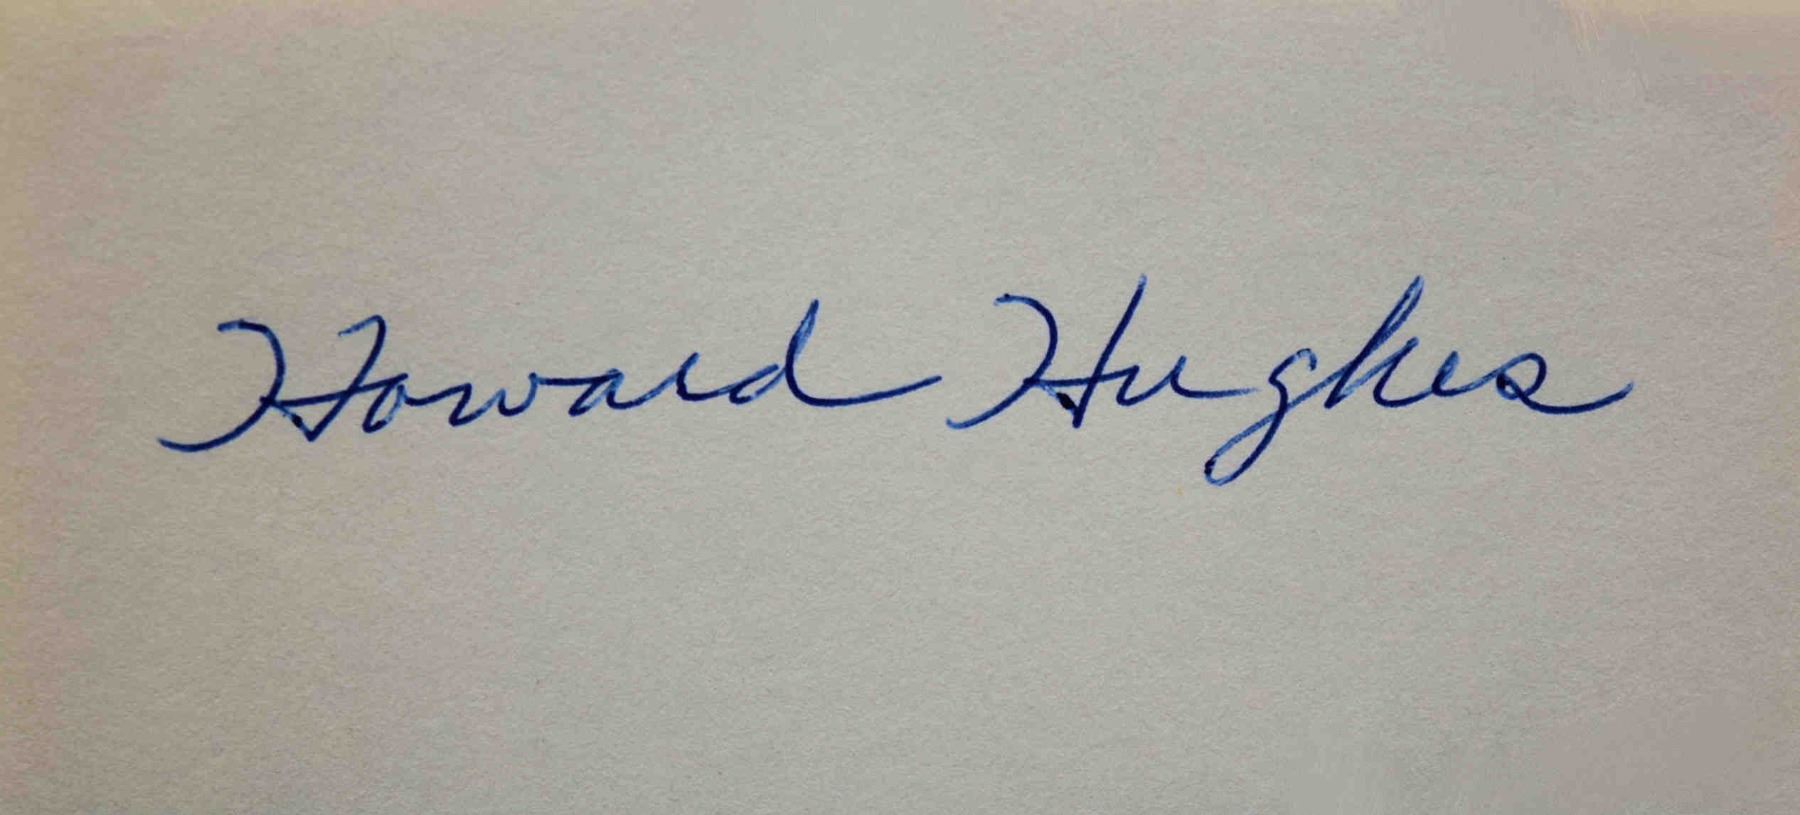 Howard Hughes